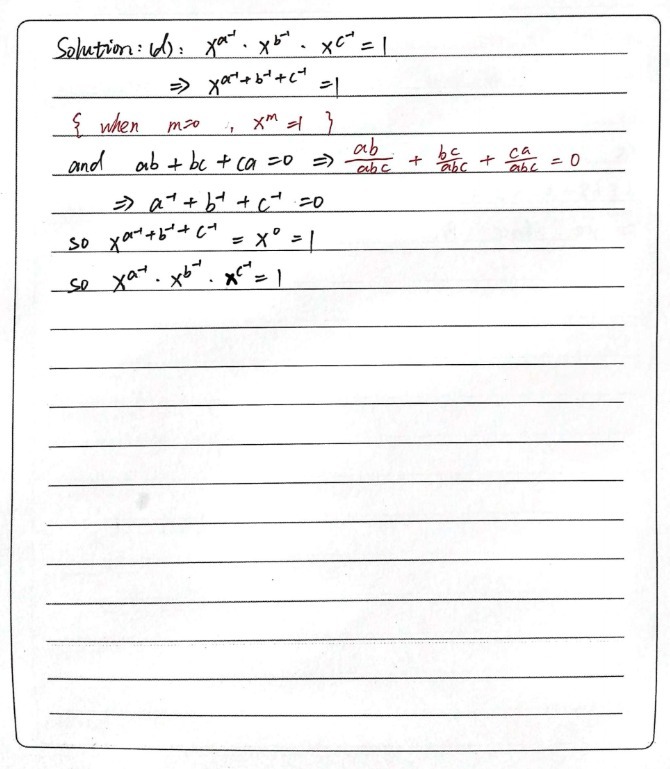 Solution: (d): x^{a^{-1}} · x^{b^{-1}} · x^{c^{-1}} = 1
⇒ x^{a^{-1}+b^{-1}+c^{-1}} = 1
{ when m=0 , x^m = 1 }
and ab + bc + ca = 0 ⇒ ab/abc + bc/abc + ca/abc = 0
⇒ a^{-1} + b^{-1} + c^{-1} = 0
so x^{a^{-1}+b^{-1}+c^{-1}} = x^0 = 1
so x^{a^{-1}} · x^{b^{-1}} · x^{c^{-1}} = 1